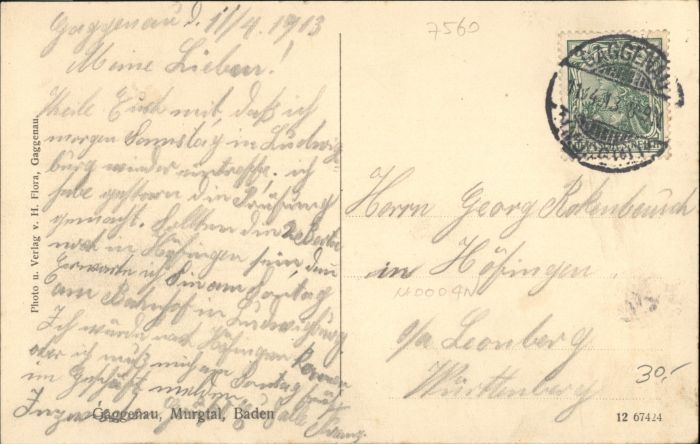 Gaggenau d. 11/4 1913
Meine Lieben!
Theile Euch mit daß ich
morgen Samstag in Ludwigs
burg wieder eintreffe. ich
habe gestern die Prüfung
gemacht. Sollten die 2
noch in Höfingen sein, dan
Erwarte ich Sie am Sontag
am Bahnhof in Ludwigsburg
Ich würde nach Höfingen kommen
aber ich muß mich am Sontag früh
im Geschäft melden
Euch alle
Photo u. Verlag v. H. Flora, Gaggenau.
Gaggenau, Murgtal, Baden
7560
GAGGENAU
Herrn Georg
in Höfingen.
o/a Leonberg
Württenberg
30,-
12 67424